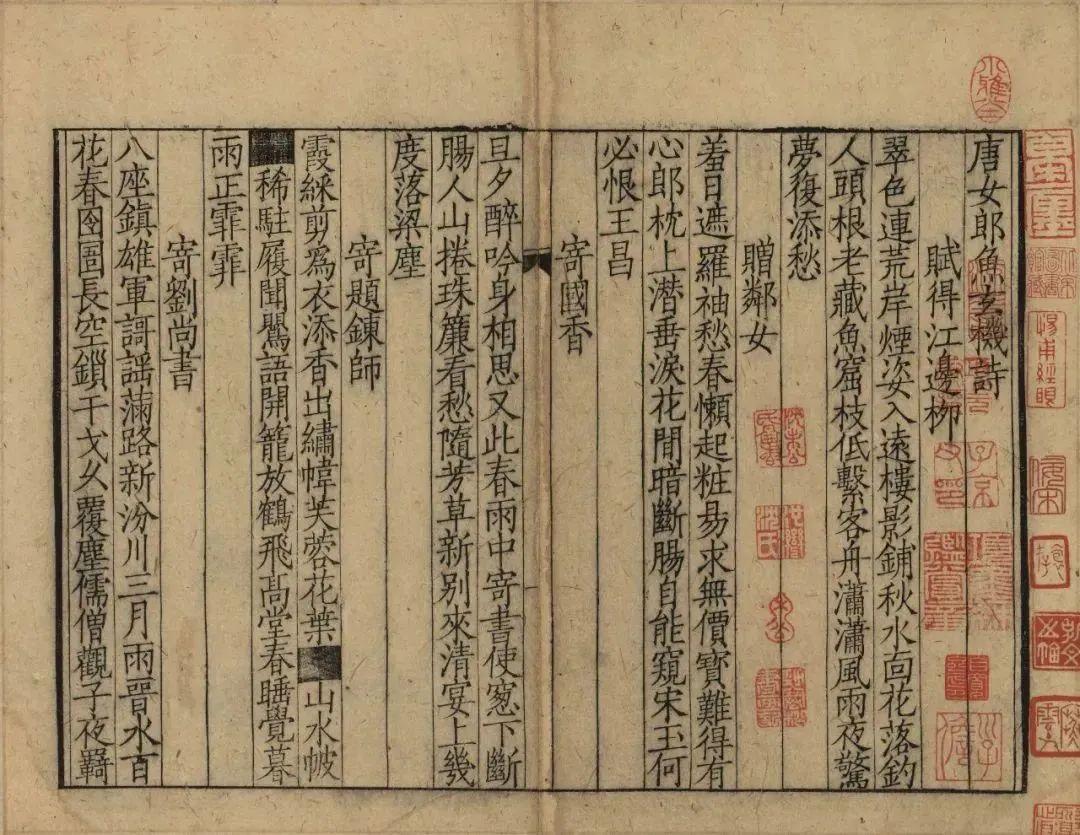 唐女郎魚玄機詩
賦得江邊柳
翠色連荒岸煙姿入遠樓影鋪秋水面花落釣
人頭根老藏魚窟枝低繫客舟瀟瀟風雨夜驚
夢復添愁
贈鄰女
羞日遮羅袖愁春懶起粧易求無價寶難得有
心郎枕上潛垂淚花間暗斷腸自能窺宋玉何
必恨王昌
寄國香
旦夕醉吟身相思又此春雨中寄書使窓下斷
腸人山捲珠簾看愁隨芳草新別來清宴上幾
度落梁塵
寄題鍊師
霞綵剪爲衣添香出繡幃芙蓉花葉山水帔
稀駐履聞鸎語開籠放鶴飛髙堂春睡覺暮
雨正霏霏
寄劉尚書
八座鎮雄軍謌謠滿路新汾川三月雨晉水百
花春囹圄長空鎖干戈久覆塵儒僧觀子夜羇